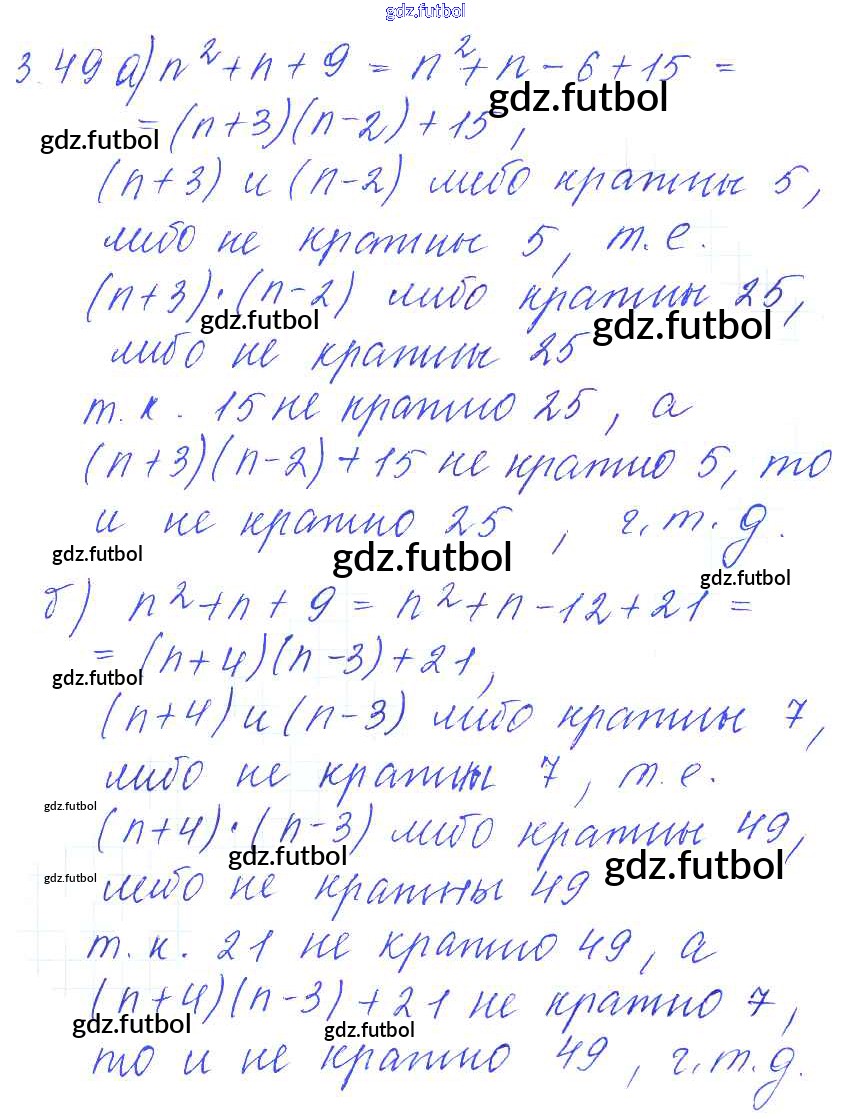 gdz.futbol
3.49 а) n² + n + 9 = n² + n - 6 + 15 =
gdz.futbol
= (n+3)(n-2) + 15,
gdz.futbol
(n+3) и (n-2) либо кратны 5,
либо не кратны 5, т.е.
(n+3)·(n-2) либо кратны 25,
gdz.futbol gdz.futbol
либо не кратны 25
т.к. 15 не кратно 25, а
(n+3)(n-2) + 15 не кратно 5, то
и не кратно 25, ч.т.д.
gdz.futbol gdz.futbol gdz.futbol
б) n² + n + 9 = n² + n - 12 + 21 =
= (n+4)(n-3) + 21,
gdz.futbol
(n+4) и (n-3) либо кратны 7,
либо не кратны 7, т.е.
gdz.futbol
(n+4)·(n-3) либо кратны 49,
gdz.futbol gdz.futbol
gdz.futbol
либо не кратны 49
т.к. 21 не кратно 49, а
(n+4)(n-3) + 21 не кратно 7,
gdz.futbol gdz.futbol
то и не кратно 49, ч.т.д.